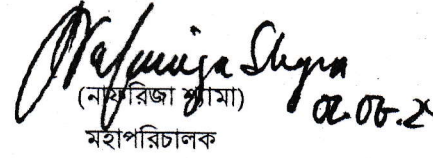 Nafriza Shyma
(নাফরিজা শ্যামা)
মহাপরিচালক